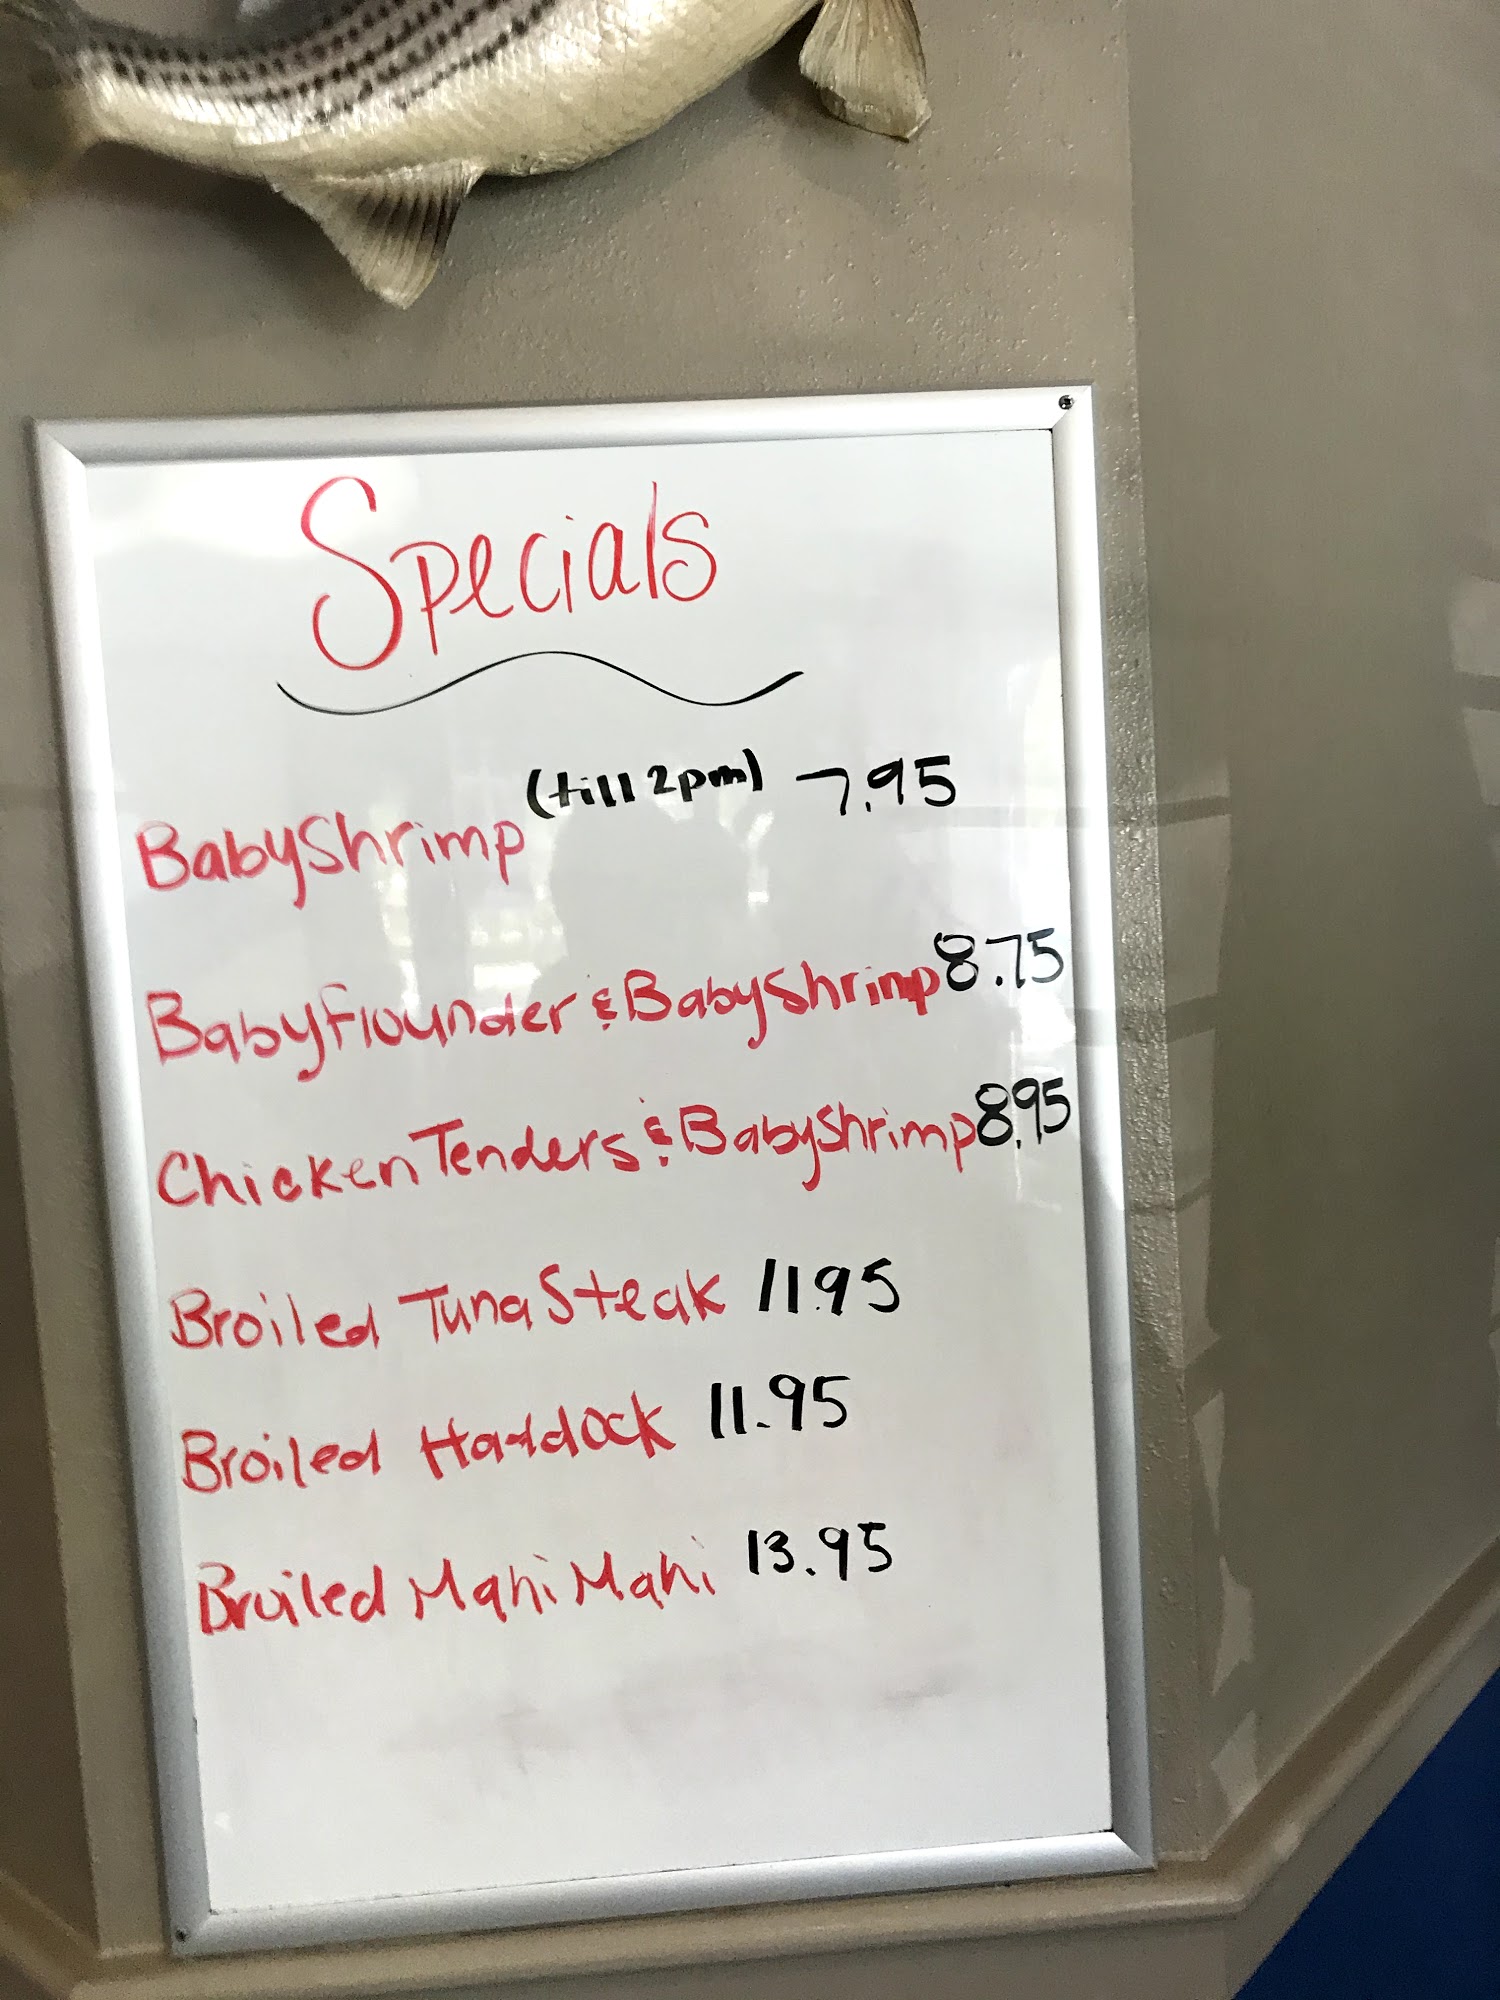 Specials
Baby Shrimp (till 2pm) 7.95
Baby Flounder & Baby Shrimp 8.75
Chicken Tenders & Baby Shrimp 8.95
Broiled Tuna Steak 11.95
Broiled Haddock 11.95
Broiled Mahi Mahi 13.95